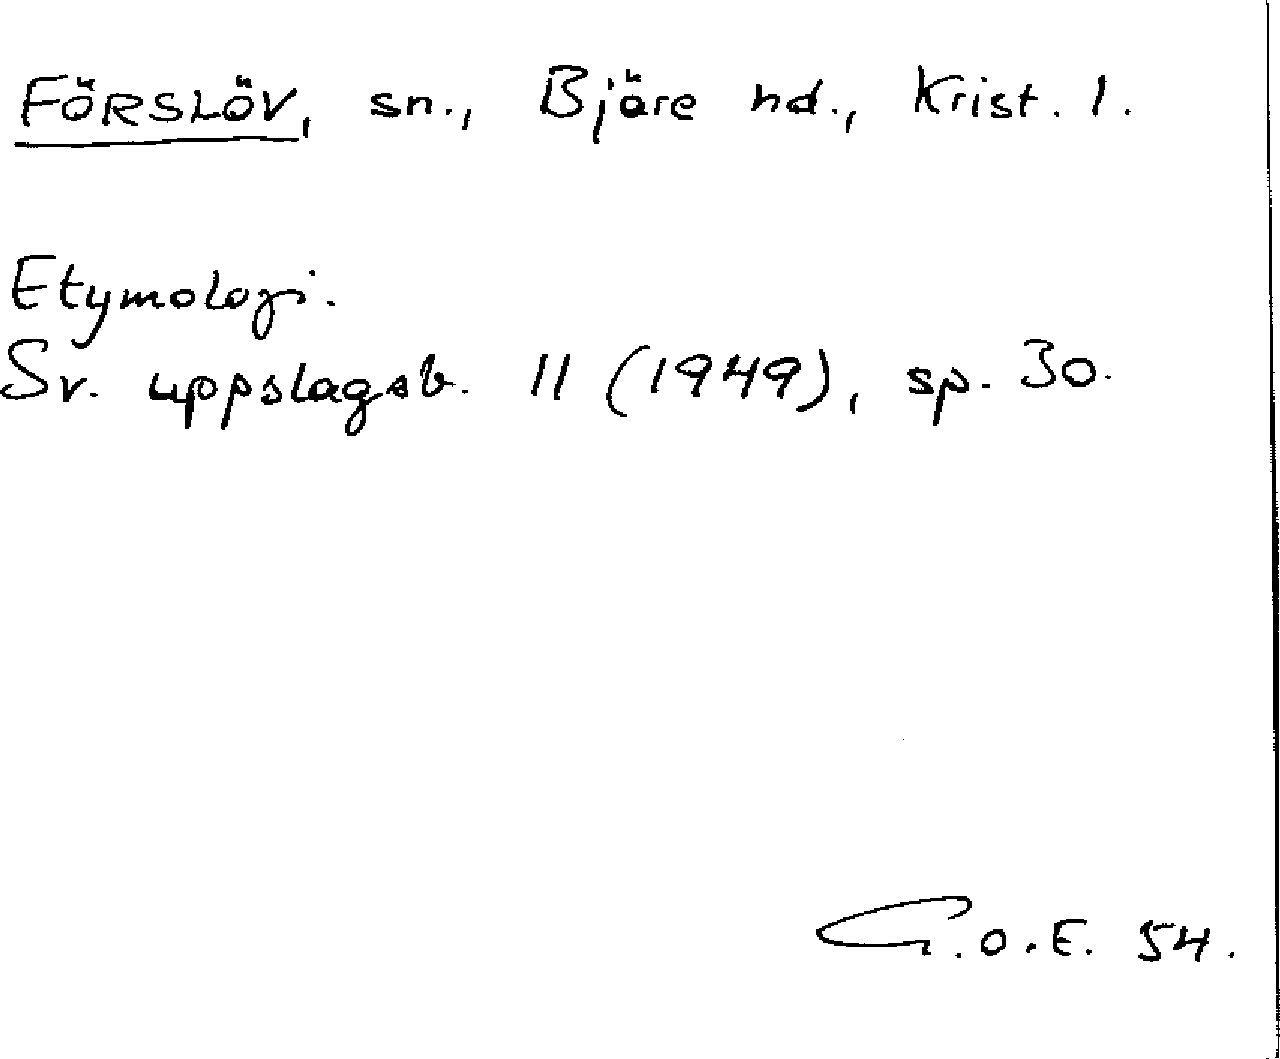 FÖRSLÖV, sn., Bjäre hd., Krist. l.
Etymologi.
Sv. uppslagsb. 11 (1949), sp. 30.
G.O.E. 54.